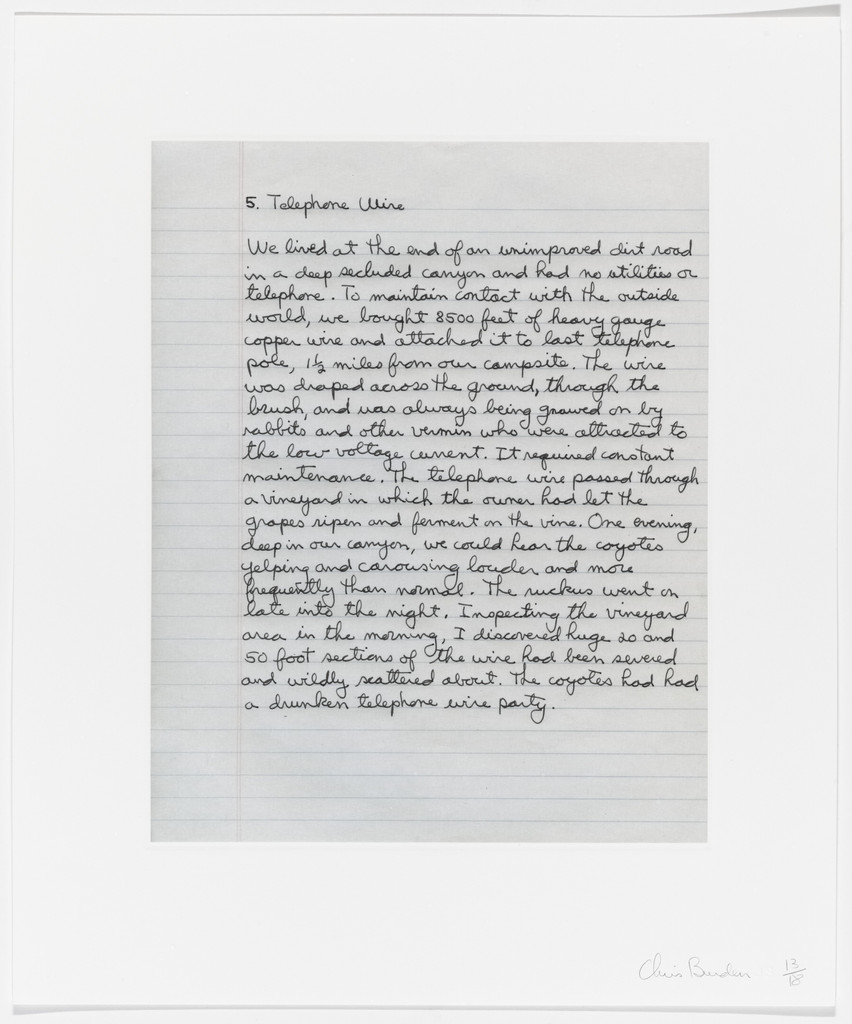 5. Telephone Wire
We lived at the end of an unimproved dirt road
in a deep secluded canyon and had no utilities or
telephone. To maintain contact with the outside
world, we bought 8500 feet of heavy gauge
copper wire and attached it to last telephone
pole, 1½ miles from our campsite. The wire
was draped across the ground, through the
brush, and was always being gnawed on by
rabbits and other vermin who were attracted to
the low voltage current. It required constant
maintenance. The telephone wire passed through
a vineyard in which the owner had let the
grapes ripen and ferment on the vine. One evening,
deep in our canyon, we could hear the coyotes
yelping and carousing louder and more
frequently than normal. The ruckus went on
late into the night. Inspecting the vineyard
area in the morning, I discovered huge 20 and
50 foot sections of the wire had been severed
and wildly scattered about. The coyotes had had
a drunken telephone wire party.
Chris Burden 13/18